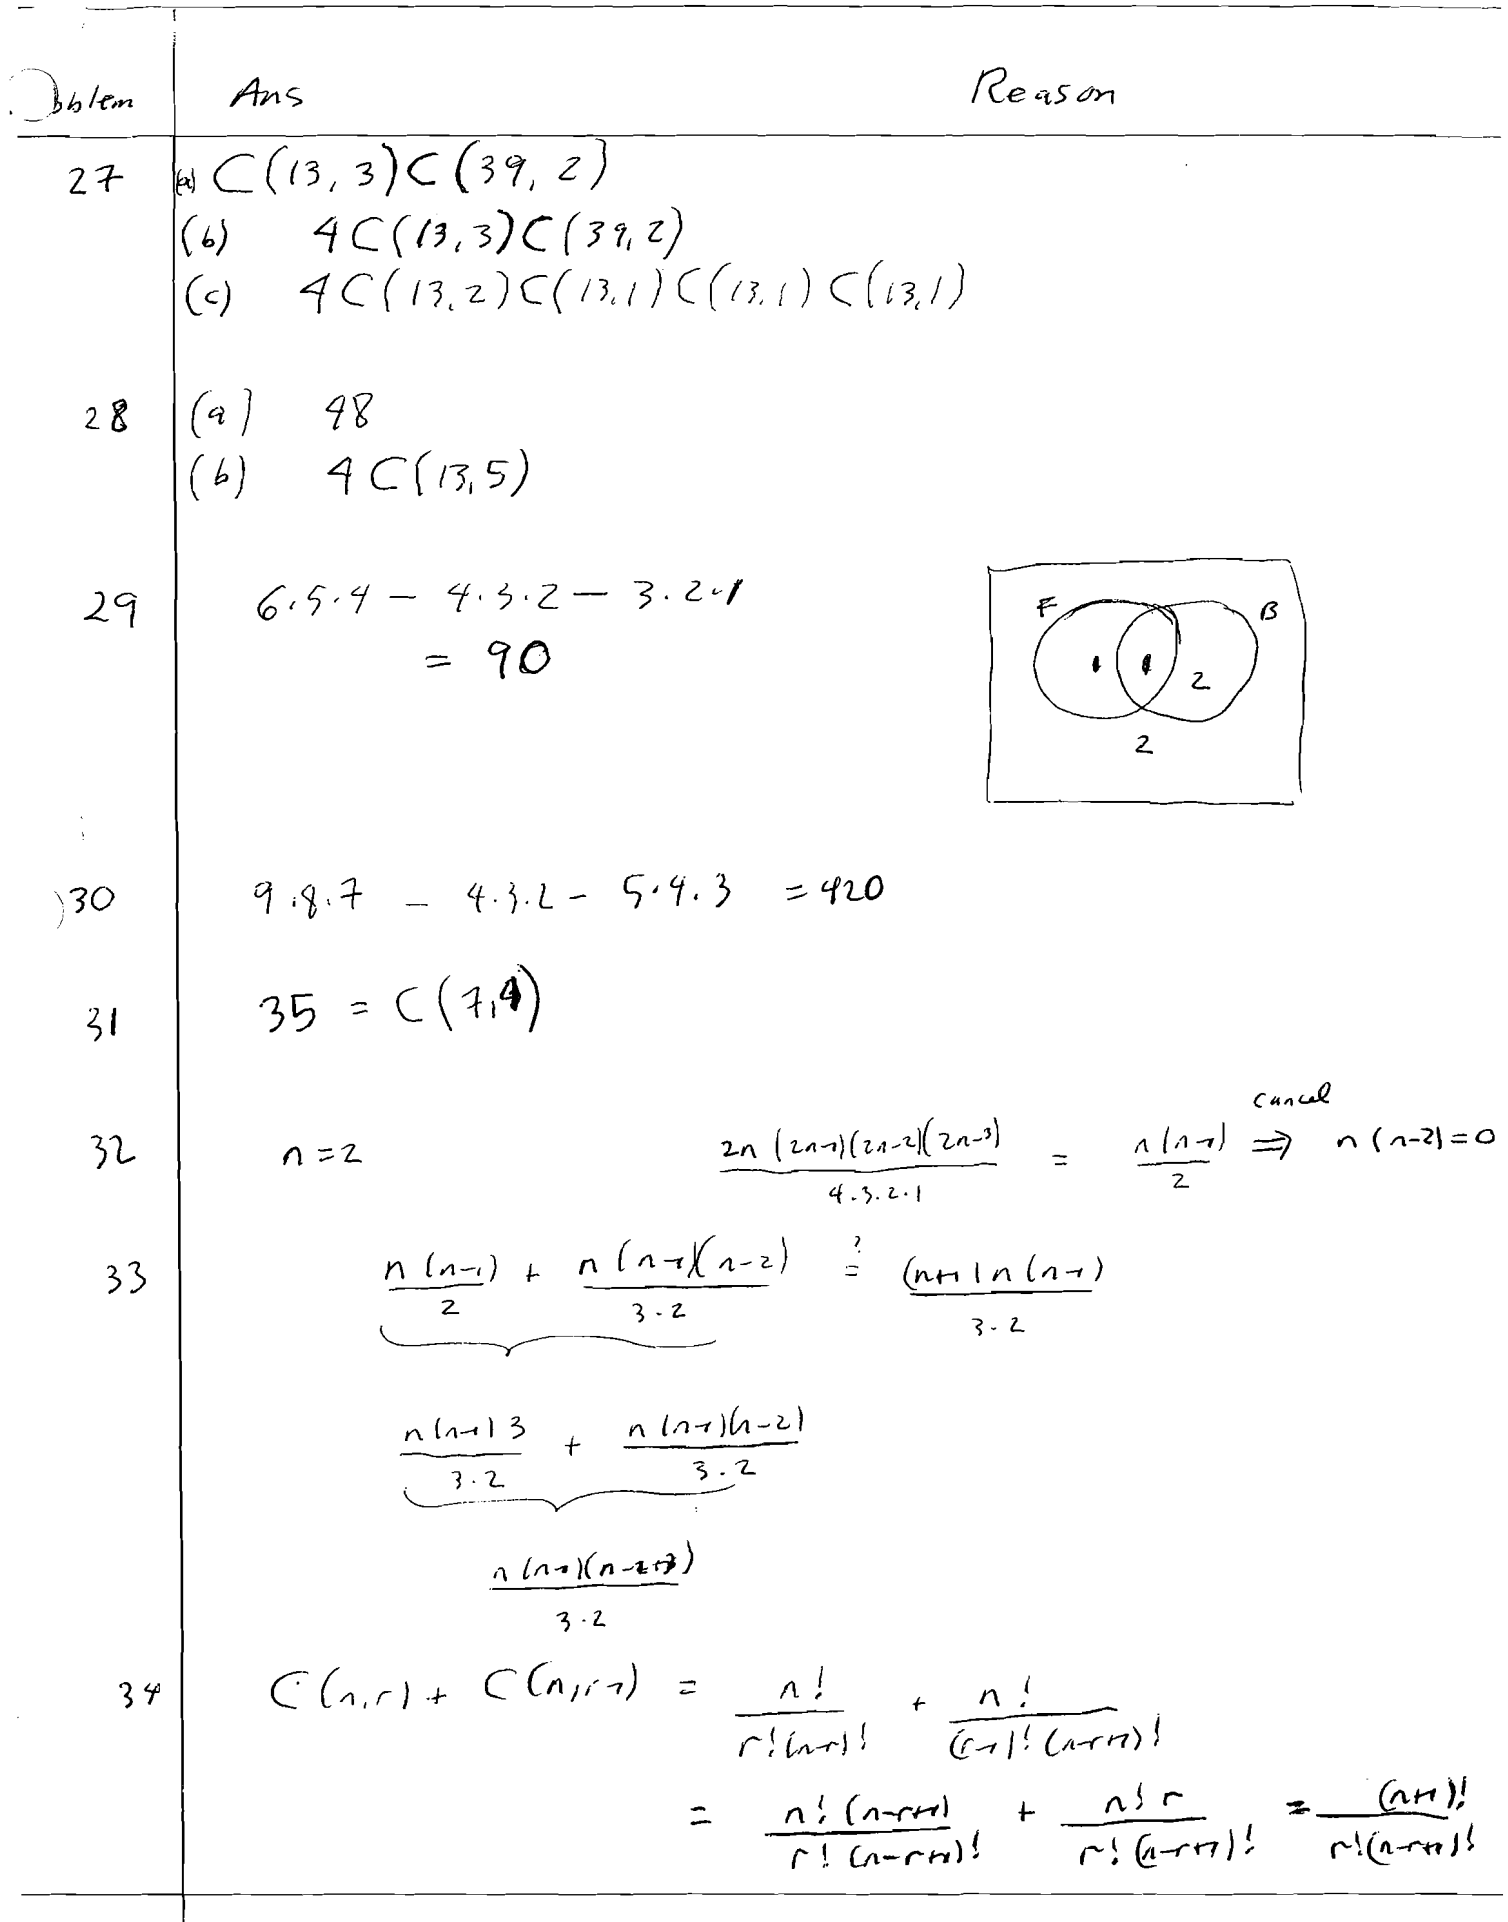 Problem Ans Reason
27 (a) C(13, 3)C(39, 2)
(b) 4C(13,3)C(39,2)
(c) 4C(13,2)C(13,1)C(13,1)C(13,1)
28 (a) 48
(b) 4C(13,5)
29 6·5·4 - 4·3·2 - 3·2·1
= 90
F B
1 1 2
2
30 9·8·7 - 4·3·2 - 5·4·3 = 420
31 35 = C(7,4)
cancel
32 n=2 2n(2n-1)(2n-2)(2n-3)/4·3·2·1 = n(n-1)/2 ⇒ n(n-2)=0
33 n(n-1)/2 + n(n-1)(n-2)/3·2 ?= (n+1)n(n-1)/3·2
n(n-1)3/3·2 + n(n-1)(n-2)/3·2
n(n-1)(n-2+3)/3·2
34 C(n,r) + C(n,r-1) = n!/r!(n-r)! + n!/(r-1)!(n-r+1)!
= n!(n-r+1)/r!(n-r+1)! + n! r/r!(n-r+1)! = (n+1)!/r!(n-r+1)!